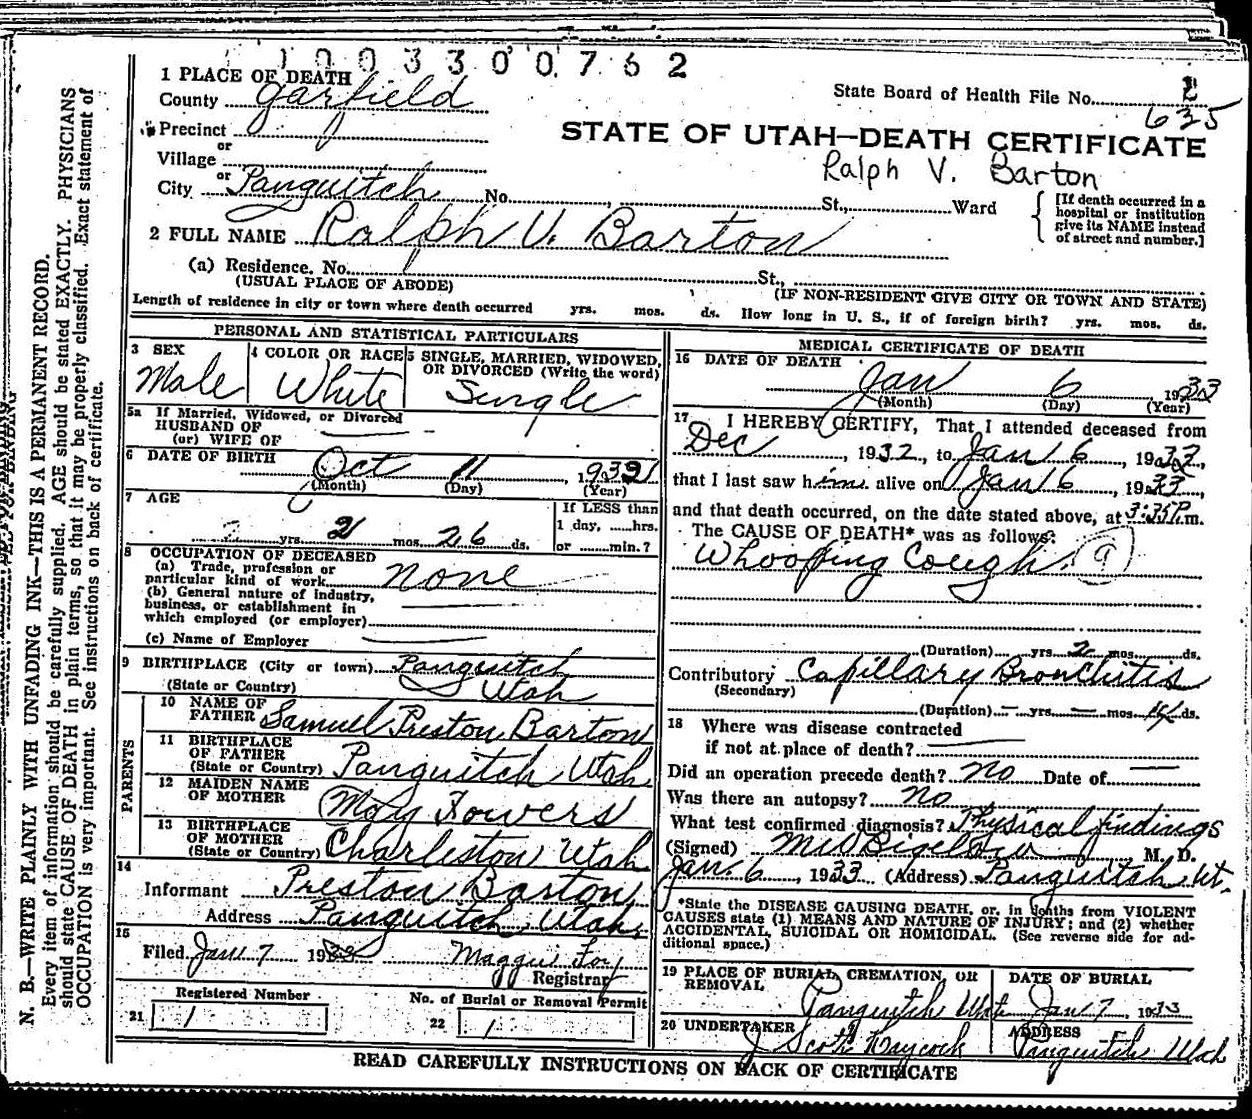 1003300762
1 PLACE OF DEATH
County Garfield
State Board of Health File No. 2
635
Precinct
or
Village
STATE OF UTAH—DEATH CERTIFICATE
Ralph V. Barton
or
City Panguitch No. St., Ward
[If death occurred in a
hospital or institution
give its NAME instead
of street and number.]
2 FULL NAME Ralph V. Barton
(a) Residence. No. St.,
(USUAL PLACE OF ABODE) (IF NON-RESIDENT GIVE CITY OR TOWN AND STATE)
Length of residence in city or town where death occurred yrs. mos. ds. How long in U. S., if of foreign birth? yrs. mos. ds.
PERSONAL AND STATISTICAL PARTICULARS
3 SEX
Male
4 COLOR OR RACE
White
5 SINGLE, MARRIED, WIDOWED,
OR DIVORCED (Write the word)
Single
5a If Married, Widowed, or Divorced
HUSBAND OF
(or) WIFE OF
6 DATE OF BIRTH
Oct 11
(Month) (Day) (Year)
7 AGE
yrs. 2 mos. 26 ds.
If LESS than
1 day, ......hrs.
or ........min.?
8 OCCUPATION OF DECEASED
(a) Trade, profession or
particular kind of work none
(b) General nature of industry,
business, or establishment in
which employed (or employer)
(c) Name of Employer
9 BIRTHPLACE (City or town) Panguitch
(State or Country) Utah
PARENTS
10 NAME OF
FATHER Samuel Preston Barton
11 BIRTHPLACE
OF FATHER
(State or Country) Panguitch Utah
12 MAIDEN NAME
OF MOTHER May Fowers
13 BIRTHPLACE
OF MOTHER
(State or Country) Charleston Utah
14
Informant Preston Barton
Address Panguitch Utah
15
Filed Jan 7 1933 Maggie Foy
Registrar
Registered Number
21 1
No. of Burial or Removal Permit
22 1
MEDICAL CERTIFICATE OF DEATH
16 DATE OF DEATH
Jan 6 1933
(Month) (Day) (Year)
17 I HEREBY CERTIFY, That I attended deceased from
Dec , 1932, to Jan 6 , 1933,
that I last saw him alive on Jan 6 , 1933,
and that death occurred, on the date stated above, at 3:35 P.m.
The CAUSE OF DEATH* was as follows:
Whooping Cough. 9
(Duration) yrs. 2 mos. ds.
Contributory Capillary Bronchitis
(Secondary)
(Duration) — yrs. — mos. 14 ds.
18 Where was disease contracted
if not at place of death?
Did an operation precede death? No Date of —
Was there an autopsy? no
What test confirmed diagnosis? Physical findings
(Signed) Bigelow M. D.
Jan. 6 , 1933 (Address) Panguitch Ut.
*State the DISEASE CAUSING DEATH, or, in deaths from VIOLENT
CAUSES state (1) MEANS AND NATURE OF INJURY; and (2) whether
ACCIDENTAL, SUICIDAL OR HOMICIDAL. (See reverse side for ad-
ditional space.)
19 PLACE OF BURIAL, CREMATION, OR
REMOVAL
Panguitch Utah
DATE OF BURIAL
Jan 7, 1933
20 UNDERTAKER
J Scott Haycock
ADDRESS
Panguitch Utah
READ CAREFULLY INSTRUCTIONS ON BACK OF CERTIFICATE
N. B.—WRITE PLAINLY WITH UNFADING INK—THIS IS A PERMANENT RECORD.
Every item of information should be carefully supplied. AGE should be stated EXACTLY. PHYSICIANS
should state CAUSE OF DEATH in plain terms, so that it may be properly classified. Exact statement of
OCCUPATION is very important. See instructions on back of certificate.